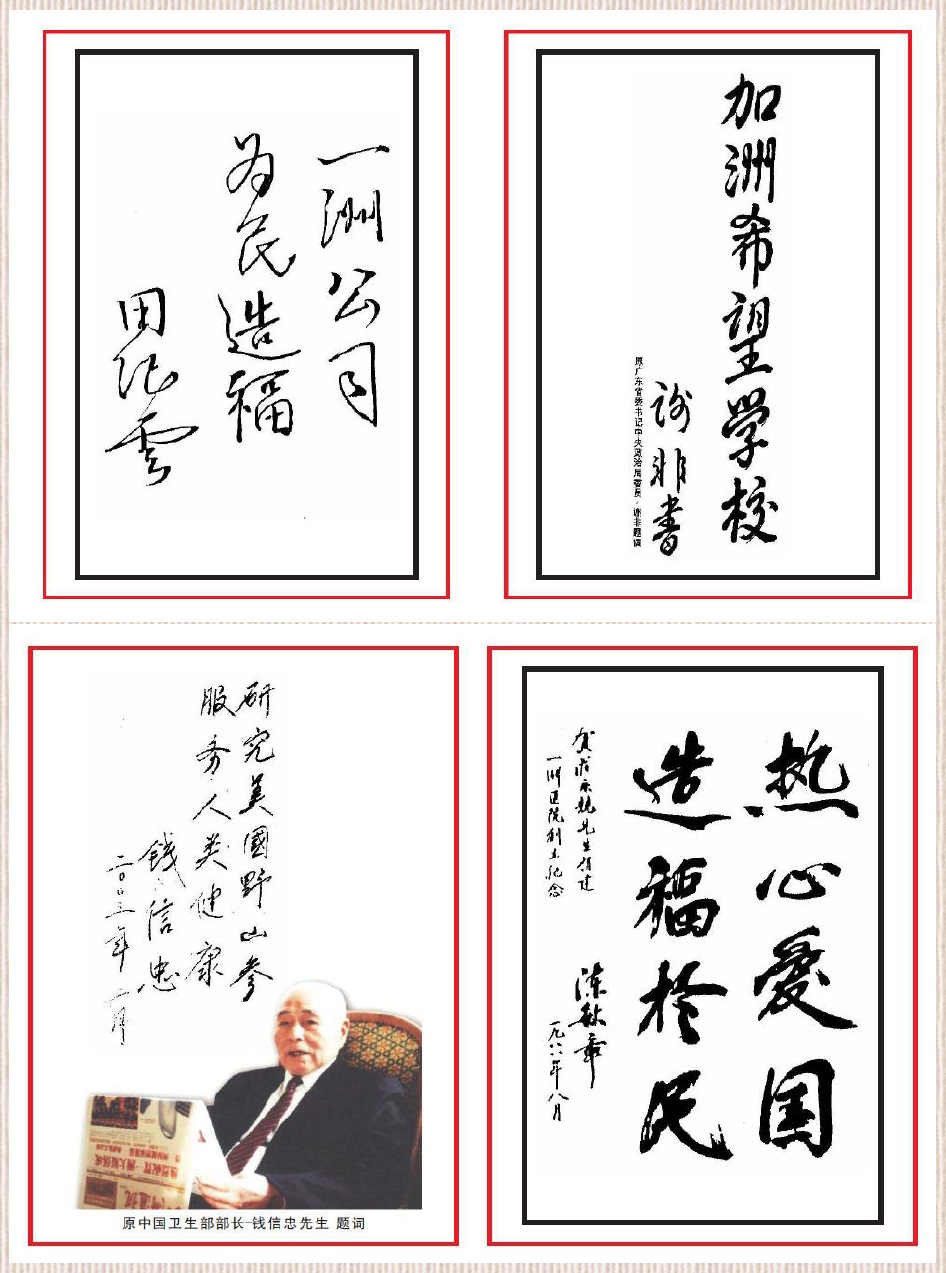 一洲公司
为民造福
田纪云
加洲希望学校
谢非书
原广东省委书记中央政治局委员，谢非题词
研究美國野山参
服务人类健康
钱信忠
二〇〇三年二月
原中国卫生部部长-钱信忠先生 题词
热心爱国
造福於民
一洲医院创立纪念
陈敏章
一九八八年八月